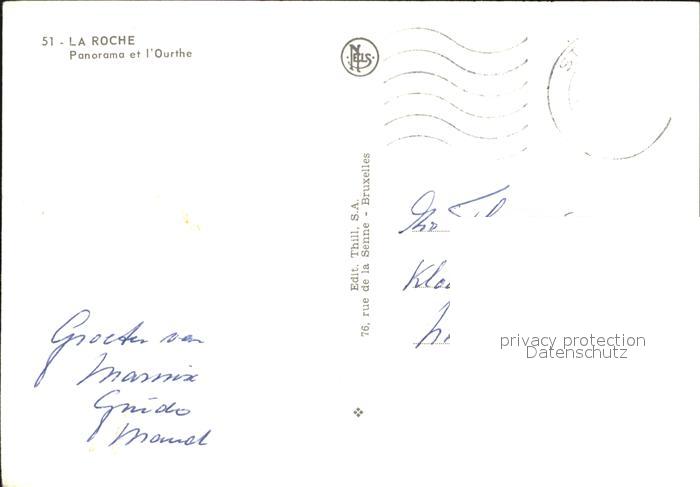 51 - LA ROCHE
Panorama et l'Ourthe
NELS
Edit. Thill, S.A.
76, rue de la Senne - Bruxelles
Groeten van
Marnix
Guido
Maud
privacy protection
Datenschutz